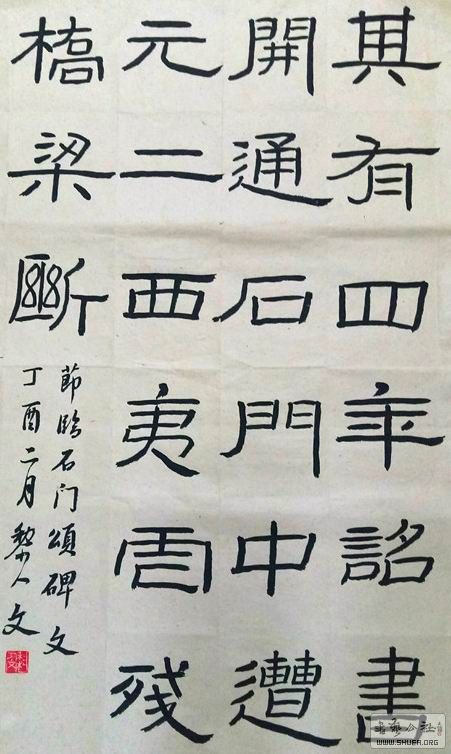 其有四年詔書
開通石門中遭
元二西夷虐殘
橋梁斷
節臨石门頌碑文
丁酉二月黎人文
书艺公社
WWW.SHUFA.ORG